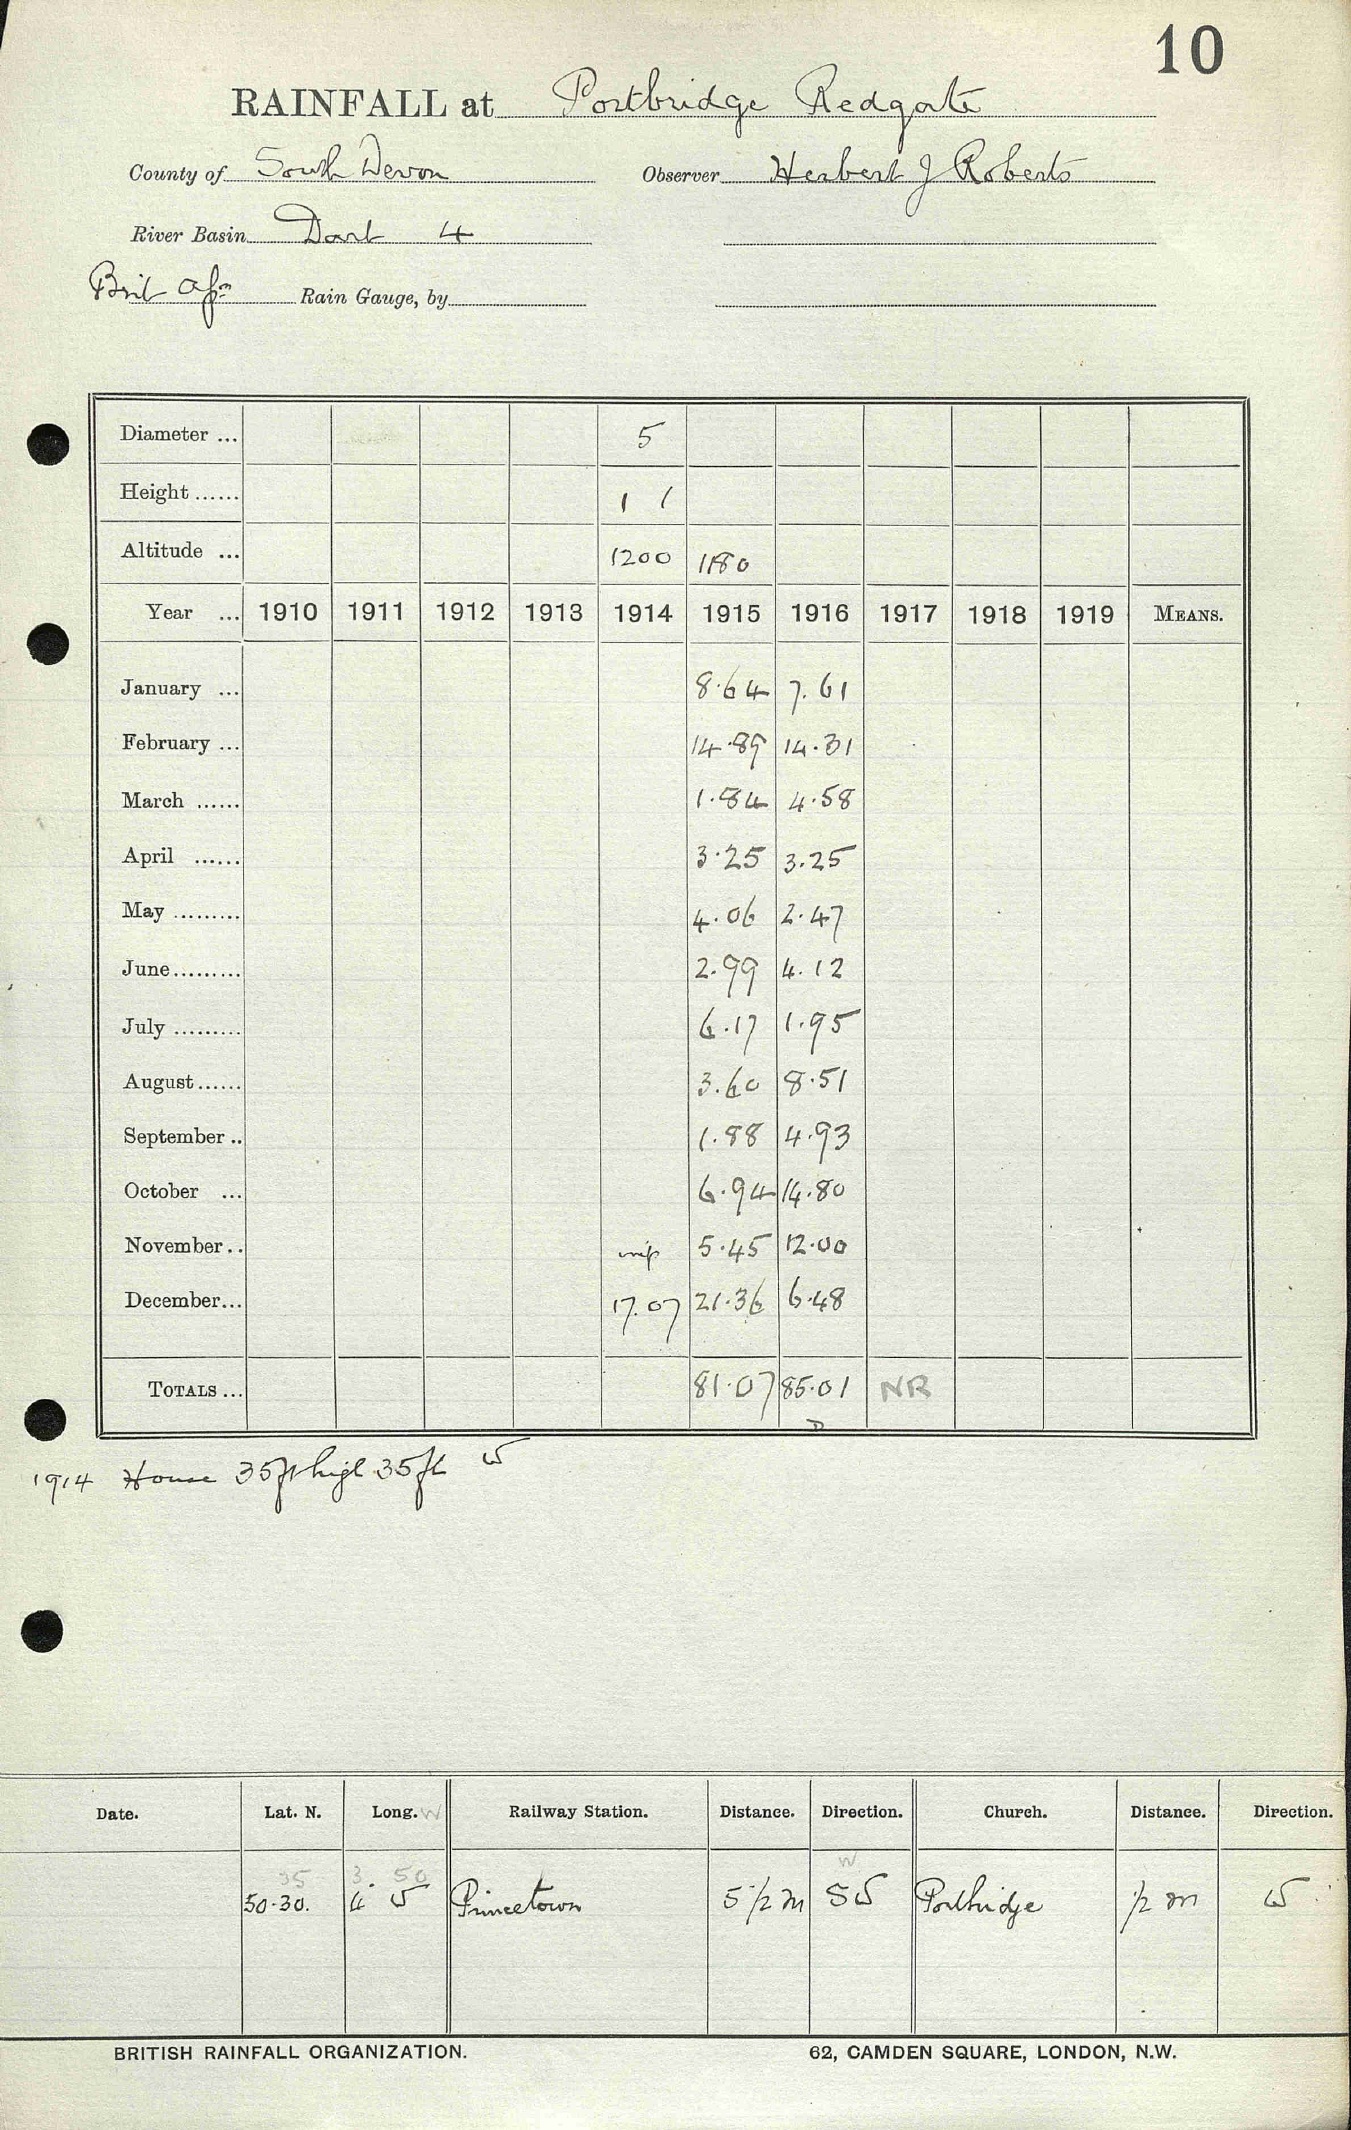 10
RAINFALL at Postbridge Redgate
County of South Devon Observer Herbert J Roberts
River Basin Dart 4
Brit Assn Rain Gauge, by
Diameter ... 5
Height ...... 1 1
Altitude ... 1200 1180
Year ... 1910 1911 1912 1913 1914 1915 1916 1917 1918 1919 MEANS.
January ... 8.64 7.61
February ... 14.89 14.31
March ...... 1.84 4.58
April ...... 3.25 3.25
May ......... 4.06 2.47
June ......... 2.99 4.12
July ......... 6.17 1.95
August ...... 3.60 8.51
September .. 1.88 4.93
October ... 6.94 14.80
November .. 5.45 12.00
December... 17.07 21.36 6.48
TOTALS ... 81.07 85.01 NR
1914 House 35ft high 35ft W
Date. Lat. N. Long. W Railway Station. Distance. Direction. Church. Distance. Direction.
35 3. 50 W
50.30. 4 5 Princetown 5 1/2 m SW Postbridge 1/2 m W
BRITISH RAINFALL ORGANIZATION. 62, CAMDEN SQUARE, LONDON, N.W.